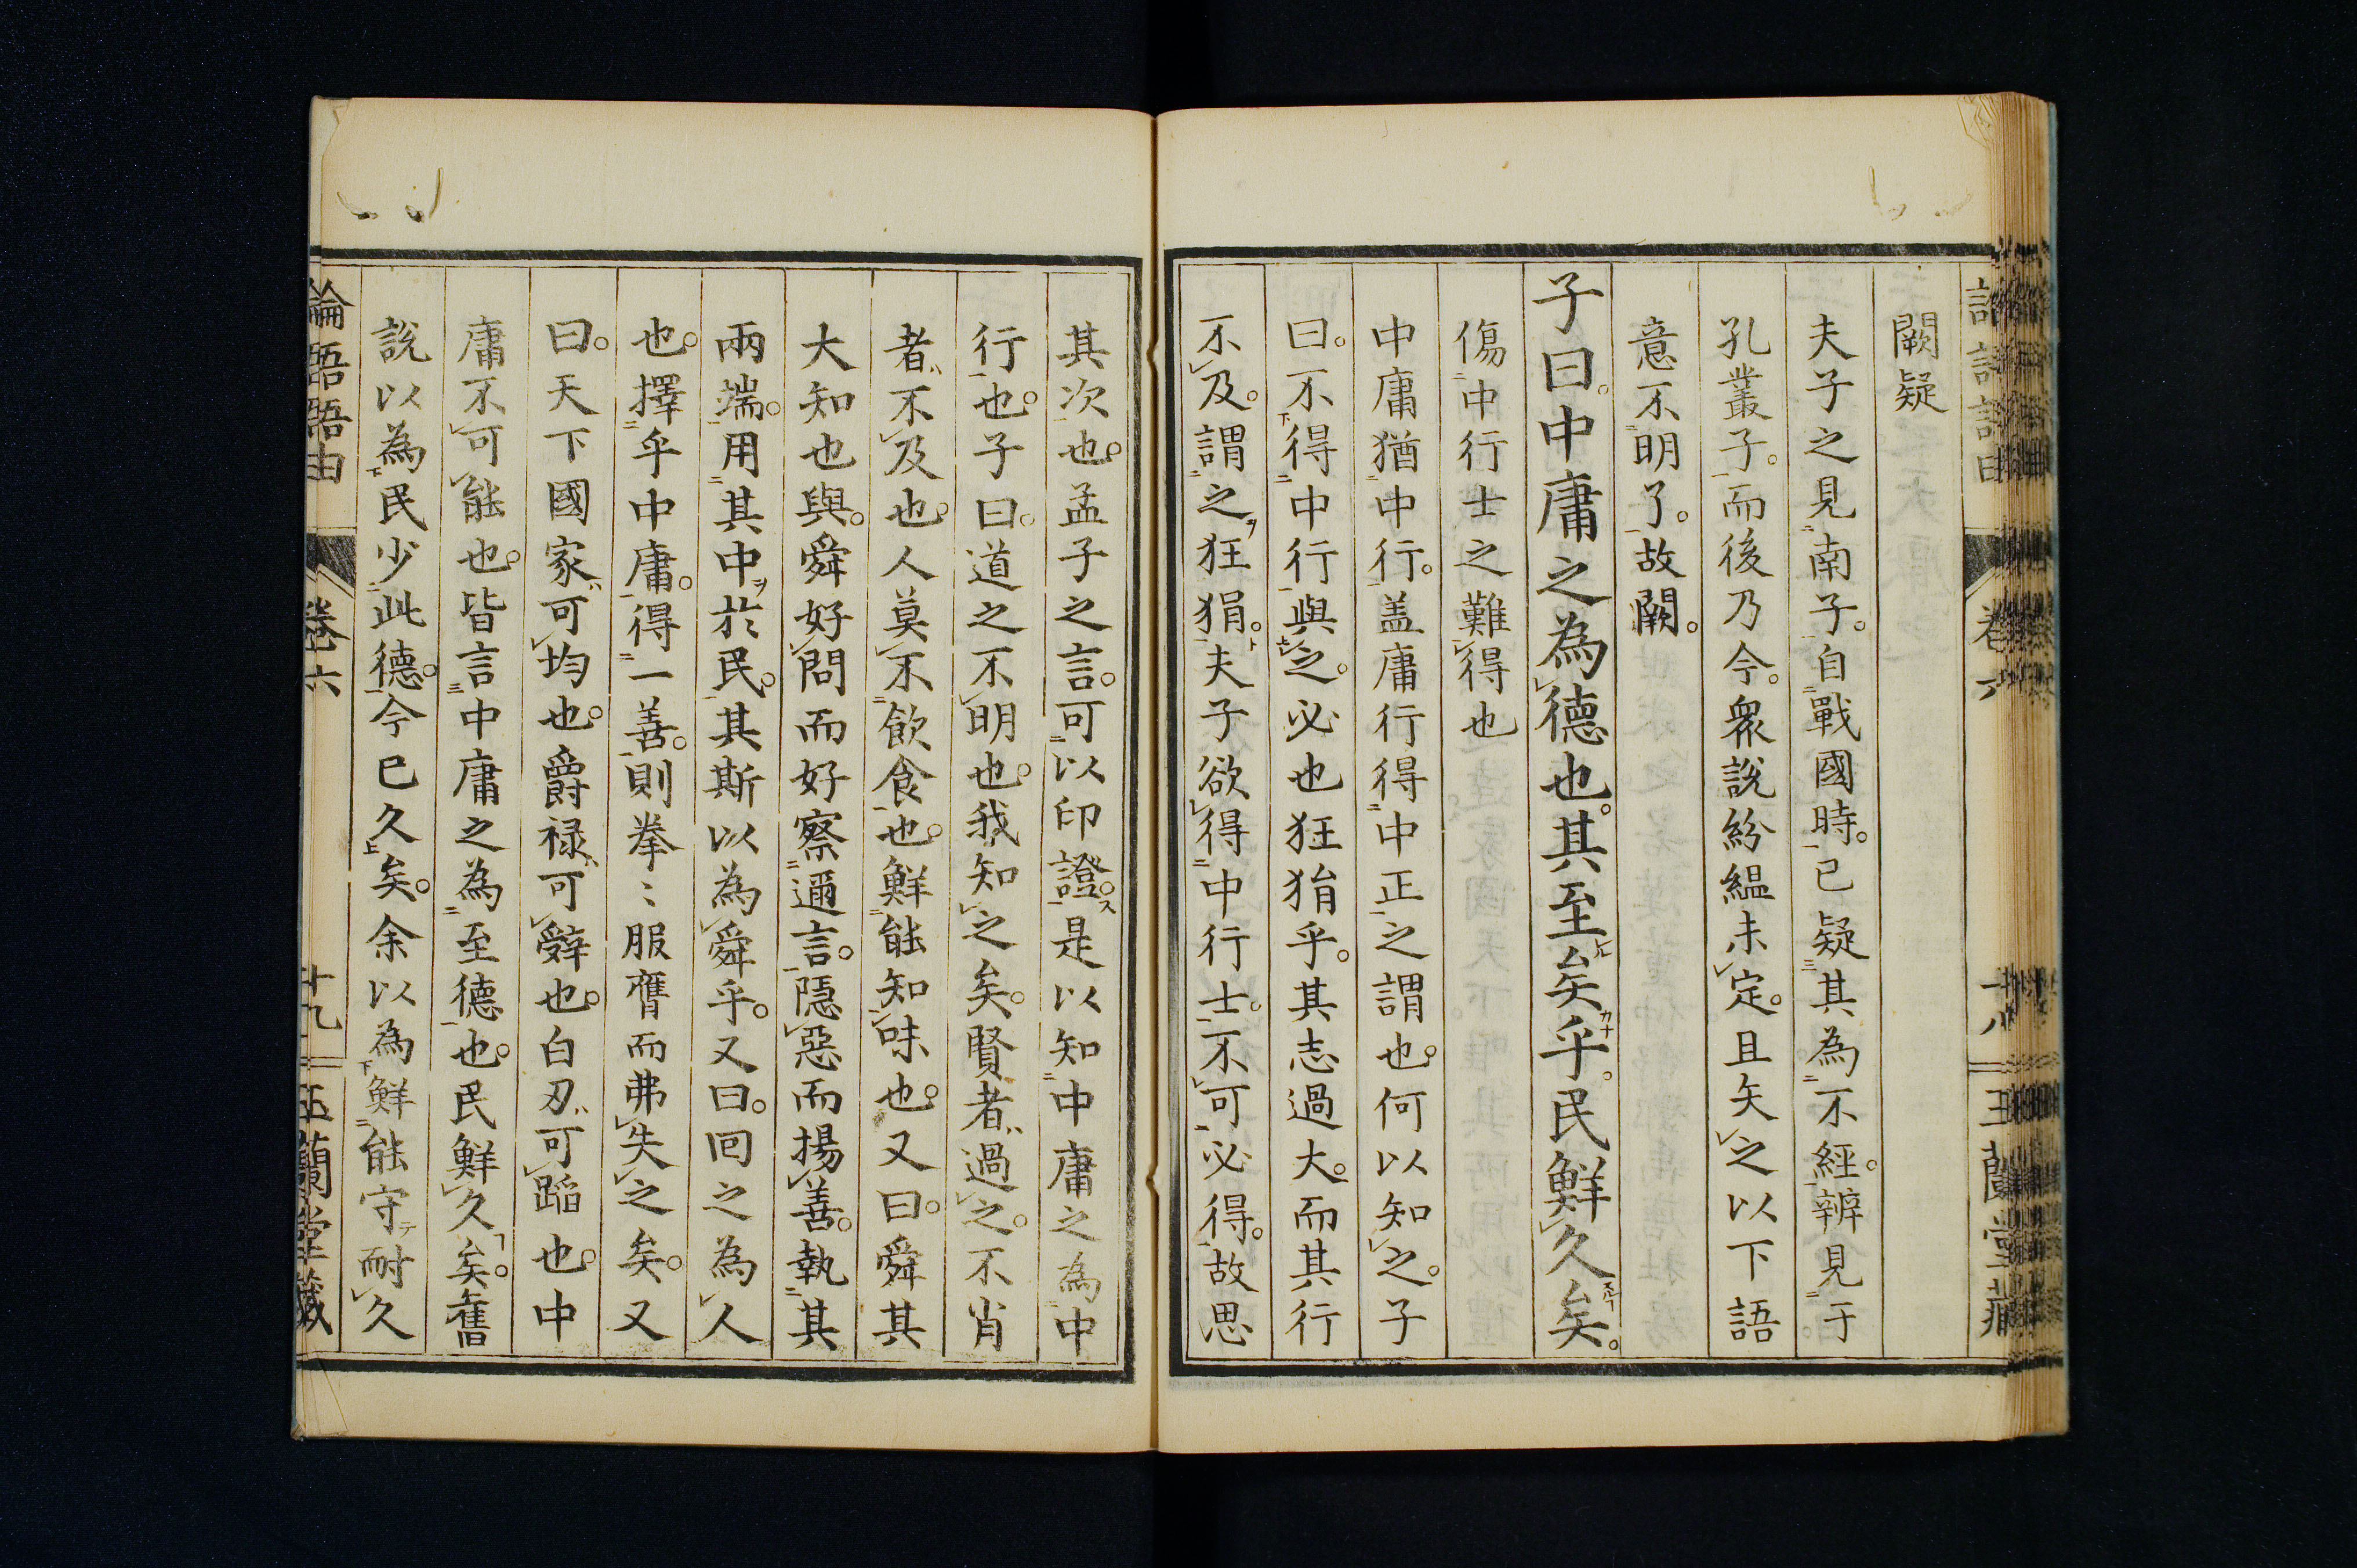 闕疑
夫子之見南子。自戰國時。已疑其為不經。辨見于
孔叢子。而後乃今。衆說紛緼未定。且矢之以下語
意不明了。故闕。
子曰。中庸之為德也。其至矣乎。民鮮久矣。
傷中行士之難得也
中庸猶中行。盖庸行得中正之謂也。何以知之。子
曰。不得中行與之。必也狂狷乎。其志過大。而其行
不及。謂之狂狷。夫子欲得中行士。不可必得。故思
其次也。孟子之言。可以印證。是以知中庸之為中
行也。子曰。道之不明也。我知之矣。賢者過之。不肖
者不及也。人莫不飲食也。鮮能知味也。又曰。舜其
大知也與。舜好問而好察邇言。隱惡而揚善。執其
兩端。用其中於民。其斯以為舜乎。又曰。回之為人
也。擇乎中庸。得一善。則拳〻服膺而弗失之矣。又
曰。天下國家可均也。爵祿可辭也。白刃可蹈也。中
庸不可能也。皆言中庸之為至德也。民鮮久矣。舊
說以為民少此德。今已久矣。余以為鮮能守耐久
論語語由 卷六 十九 玉蘭堂藏